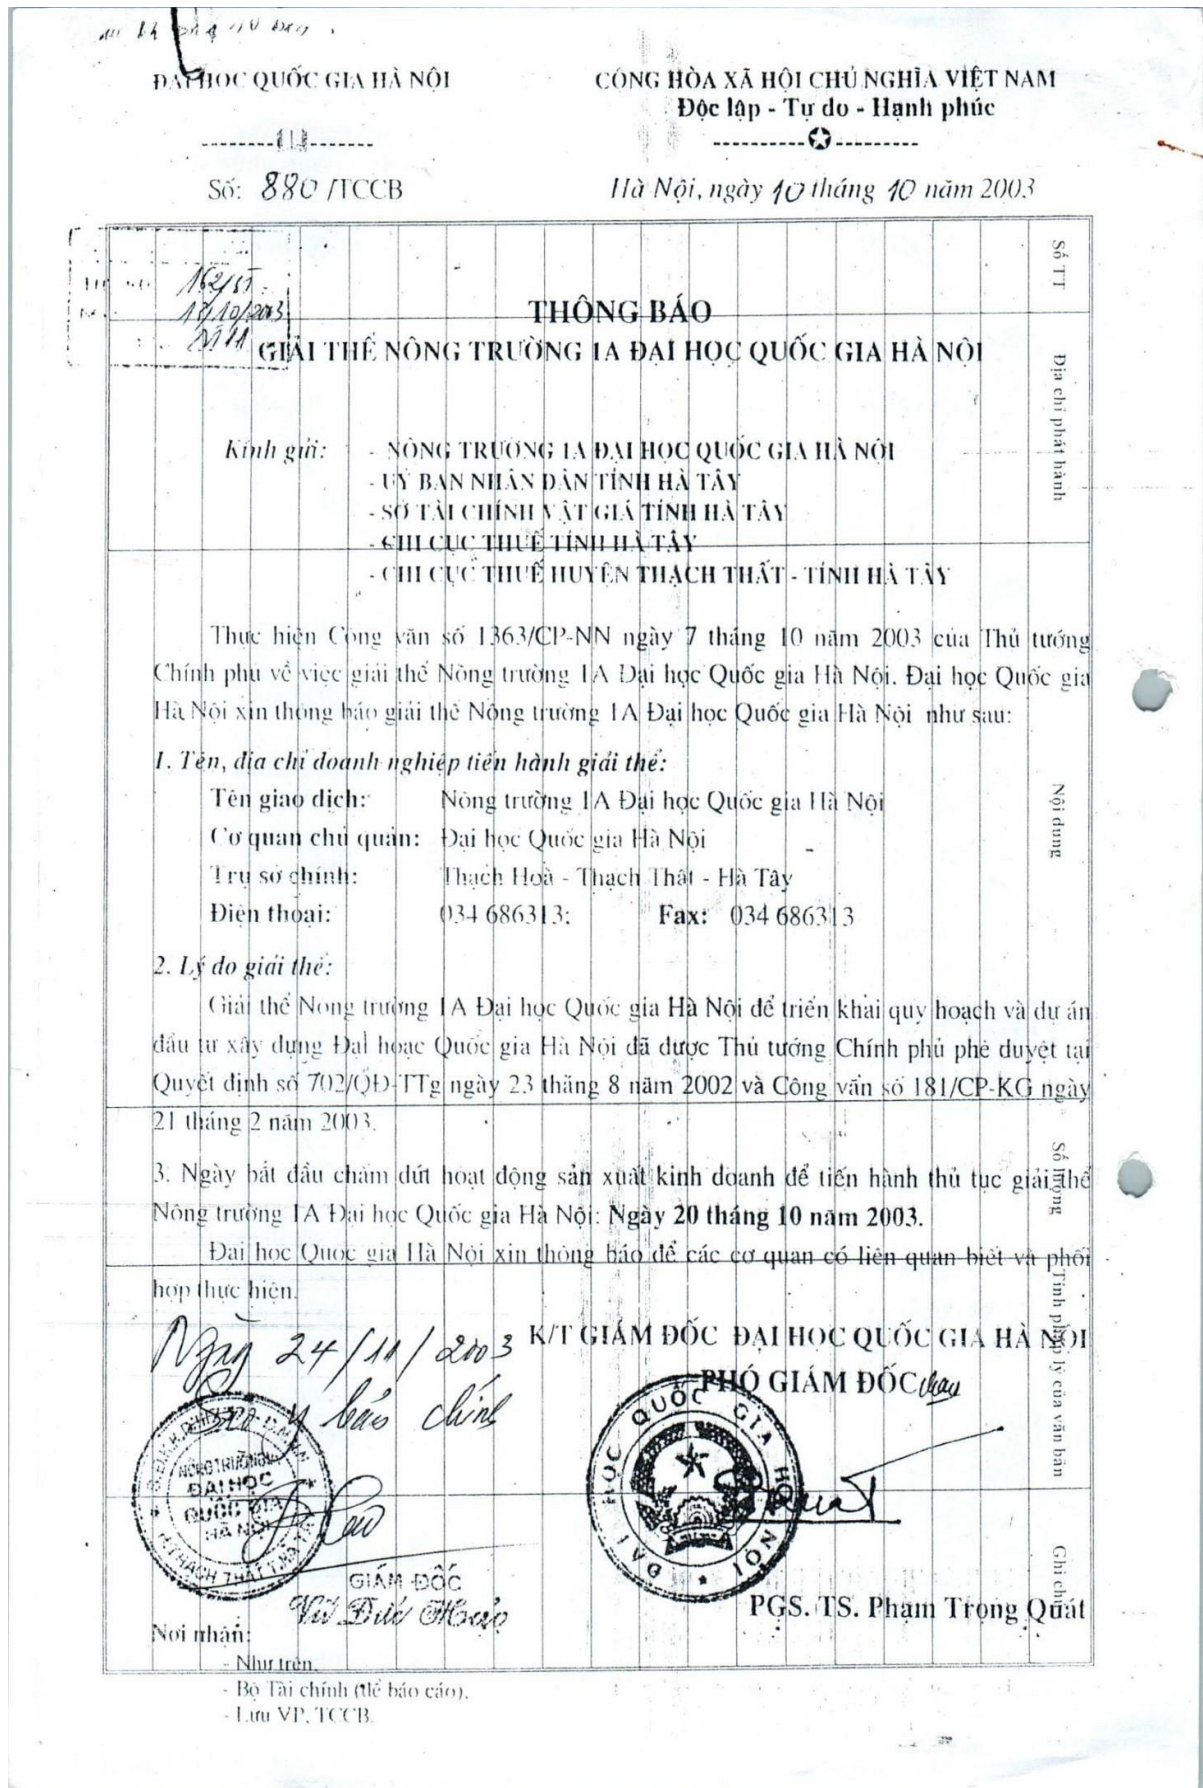 ĐẠI HỌC QUỐC GIA HÀ NỘI
CỘNG HÒA XÃ HỘI CHỦ NGHĨA VIỆT NAM
Độc lập - Tự do - Hạnh phúc
Số: 880 /TCCB
Hà Nội, ngày 10 tháng 10 năm 2003
Số TT
162/
13/10/2003
THÔNG BÁO
GIẢI THỂ NÔNG TRƯỜNG 1A ĐẠI HỌC QUỐC GIA HÀ NỘI
Địa chỉ phát hành
Kính gửi: - NÔNG TRƯỜNG 1A ĐẠI HỌC QUỐC GIA HÀ NỘI
- UỶ BAN NHÂN DÂN TỈNH HÀ TÂY
- SỞ TÀI CHÍNH VẬT GIÁ TỈNH HÀ TÂY
- CHI CỤC THUẾ TỈNH HÀ TÂY
- CHI CỤC THUẾ HUYỆN THẠCH THẤT - TỈNH HÀ TÂY
Thực hiện Công văn số 1363/CP-NN ngày 7 tháng 10 năm 2003 của Thủ tướng
Chính phủ về việc giải thể Nông trường 1A Đại học Quốc gia Hà Nội. Đại học Quốc gia
Hà Nội xin thông báo giải thể Nông trường 1A Đại học Quốc gia Hà Nội như sau:
1. Tên, địa chỉ doanh nghiệp tiến hành giải thể:
Tên giao dịch: Nông trường 1A Đại học Quốc gia Hà Nội
Cơ quan chủ quản: Đại học Quốc gia Hà Nội
Trụ sở chính: Thạch Hoà - Thạch Thất - Hà Tây
Điện thoại: 034 686313: Fax: 034 686313
Nội dung
2. Lý do giải thể:
Giải thể Nông trường 1A Đại học Quốc gia Hà Nội để triển khai quy hoạch và dự án
đầu tư xây dựng Đại hoạc Quốc gia Hà Nội đã được Thủ tướng Chính phủ phê duyệt tại
Quyết định số 702/QĐ-TTg ngày 23 tháng 8 năm 2002 và Công văn số 181/CP-KG ngày
21 tháng 2 năm 2003.
Số lượng
3. Ngày bắt đầu chấm dứt hoạt động sản xuất kinh doanh để tiến hành thủ tục giải thể
Nông trường 1A Đại học Quốc gia Hà Nội: Ngày 20 tháng 10 năm 2003.
Đại học Quốc gia Hà Nội xin thông báo để các cơ quan có liên quan biết và phối
hợp thực hiện.
Tính pháp lý của văn bản
Ngày 24/11/2003
Sao y báo chính
K/T GIÁM ĐỐC ĐẠI HỌC QUỐC GIA HÀ NỘI
PHÓ GIÁM ĐỐC
NÔNG TRƯỜNG 1A
ĐẠI HỌC
QUỐC GIA
HÀ NỘI
H.THẠCH THẤT T.HÀ TÂY
ĐẠI HỌC QUỐC GIA HÀ NỘI
GIÁM ĐỐC
Vũ Đức
Ghi chú
PGS. TS. Phạm Trọng Quát
Nơi nhận:
- Như trên.
- Bộ Tài chính (để báo cáo).
- Lưu VP, TCCB.